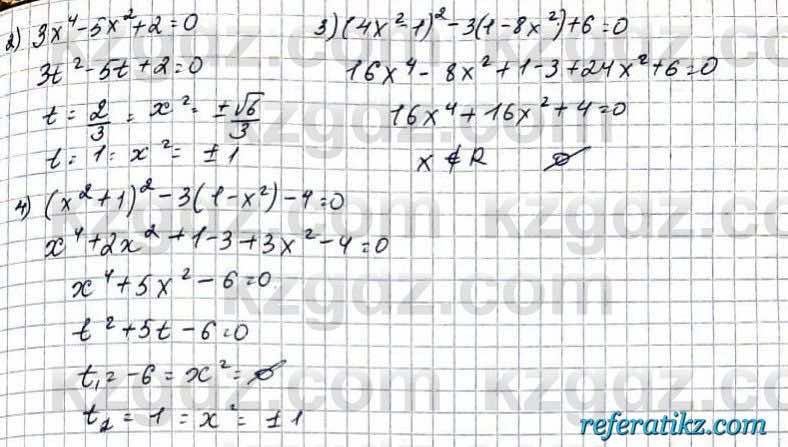 2) 3x⁴-5x²+2=0
3t²-5t+2=0
t = 2/3 = x² = ±√6/3
t = 1 = x² = ±1
3) (4x²-1)²-3(1-8x²)+6=0
16x⁴-8x²+1-3+24x²+6=0
16x⁴+16x²+4=0
x ∉ R ∅
4) (x²+1)²-3(1-x²)-4=0
x⁴+2x²+1-3+3x²-4=0
x⁴+5x²-6=0
t²+5t-6=0
t₁=-6=x²=∅
t₂=1=x²=±1
kzgdz.com
referatikz.com